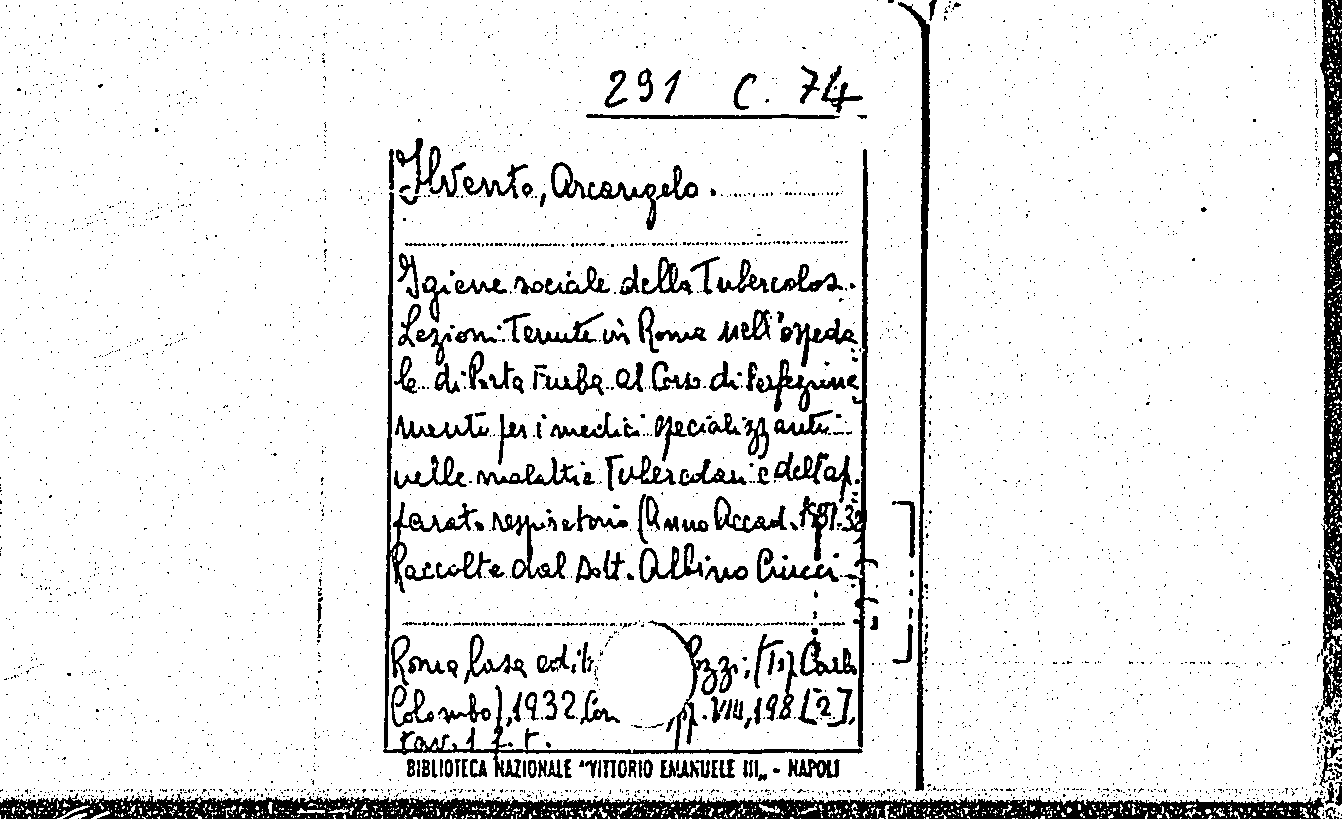 291 C. 74
Ilvento, Arcangelo.
Igiene sociale della Tubercolos.
Lezioni Tenute in Roma nell'ospeda
le di Porta Furba al Corso di Perfeziona
mento per i medici specializzanti
nelle malattie Tubercolari e dell'ap.
parato respiratorio (Anno Accad. 1931-32
Raccolte dal Dott. Albino Ciucci
Roma, Casa edit. ozzi, (Tip. Carlo
Colombo), 1932, pp. VIII, 198 [2],
tav. 1 f. t.
BIBLIOTECA NAZIONALE "VITTORIO EMANUELE III„ - NAPOLI